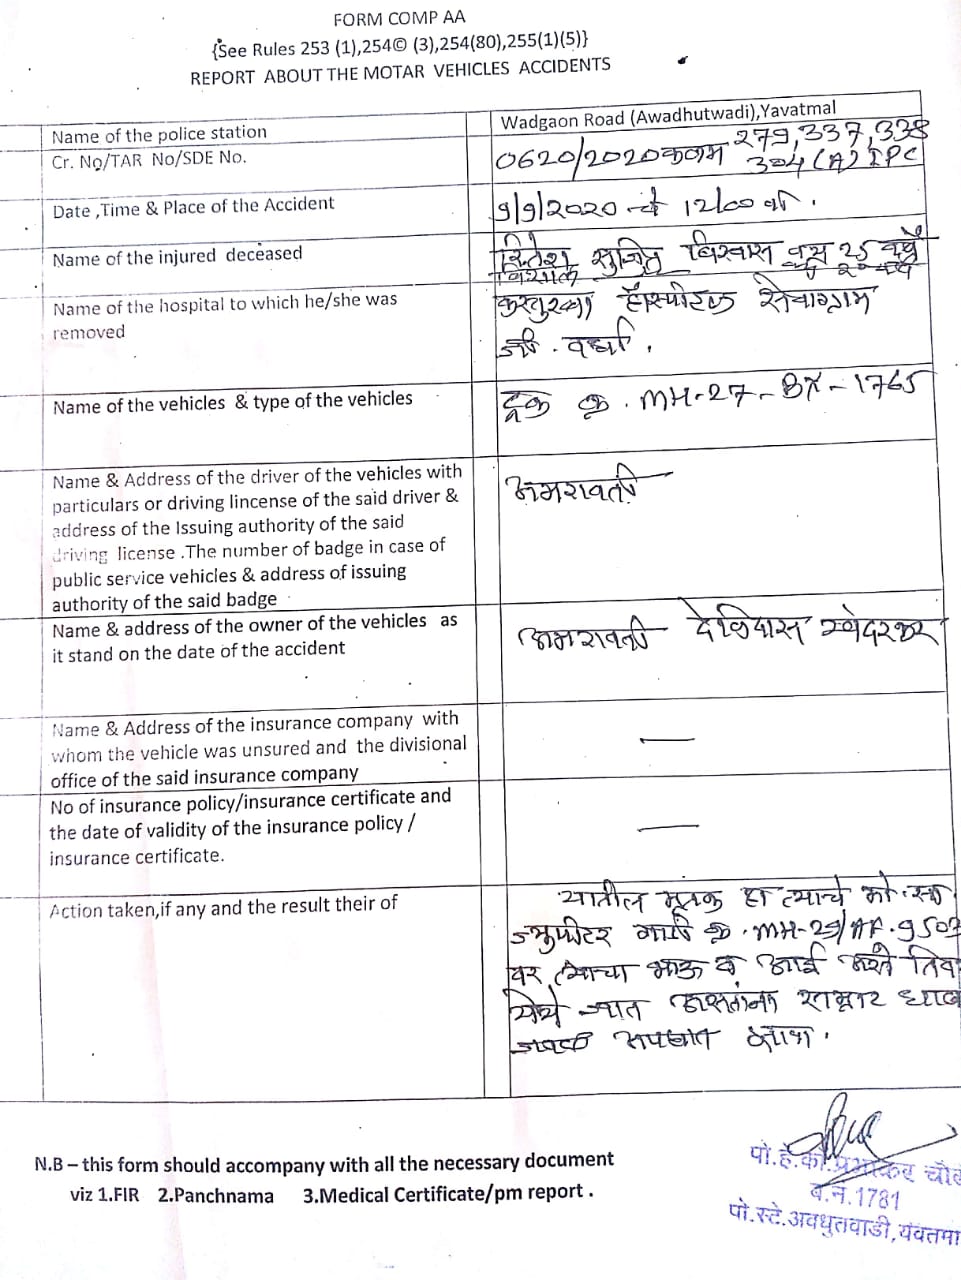 FORM COMP AA
{See Rules 253 (1),254© (3),254(80),255(1)(5)}
REPORT ABOUT THE MOTAR VEHICLES ACCIDENTS
Name of the police station
Wadgaon Road (Awadhutwadi),Yavatmal
Cr. No/TAR No/SDE No.
0620/2020 कलम 279,337,338
304(A) IPC
Date ,Time & Place of the Accident
9/9/2020 चे 12/00 वा.
Name of the injured deceased
रितेश सुजित बिस्वास वय 25 वर्षे
Name of the hospital to which he/she was
removed
कस्तुरबा हॉस्पीटल सेवाग्राम
जी. वर्धा.
Name of the vehicles & type of the vehicles
ट्रक क्र. MH-27-BX-1765
Name & Address of the driver of the vehicles with
particulars or driving lincense of the said driver &
address of the Issuing authority of the said
driving license .The number of badge in case of
public service vehicles & address of issuing
authority of the said badge
अमरावती
Name & address of the owner of the vehicles as
it stand on the date of the accident
अमरावती देविदास
Name & Address of the insurance company with
whom the vehicle was unsured and the divisional
office of the said insurance company
—
No of insurance policy/insurance certificate and
the date of validity of the insurance policy /
insurance certificate.
—
Action taken,if any and the result their of
यातील मृतक हा त्याचे मो.सा
ज्युपीटर गाडी क्र. MH-29/AF-9503
वर त्याचा भाऊ व आई असे
येथे जात असतांना
अपघात झाला.
N.B – this form should accompany with all the necessary document
viz 1.FIR 2.Panchnama 3.Medical Certificate/pm report .
पो.हे.कॉ.प्रभाकर
ब.नं.1781
पो.स्टे.अवधुतवाडी,यवतमा